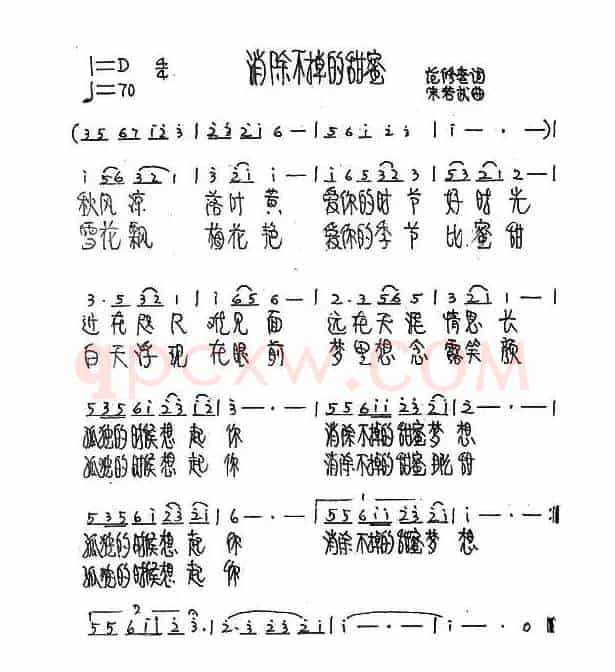 消除不掉的甜蜜
1=D 4/4
♩=70
范修奎词
宋若武曲
(35 67 i2 3 | 2321 6 — | 561 23 | i — · — )|
i 56 32 1 | 3 21 1 — | 1653 23 | 5321 2 — |
秋风凉 落叶黄 爱你的时节 好时光
雪花飘 梅花艳 爱你的季节 比蜜甜
3·5 32 1 | 1 65 6 — | 2·3 56 5 | 3 21 1 — |
近在咫尺 难见面 远在天涯 情思长
白天浮现 在眼前 梦里想念 露笑颜
5356i 23 12 | 3 — · — | 556ii 23 21 | 2 — · — |
孤独的时候想起你 消除不掉的甜蜜梦想
孤独的时候想起你 消除不掉的甜蜜
5356i 23 21 | 6 — · — | 556ii 23 21 | i — · — :|
孤独的时候想起你 消除不掉的甜蜜梦想
孤独的时候想起你
556ii 2 3· | 2·3 23 21 | i — · — | i — · 0 |
qpcxw.com